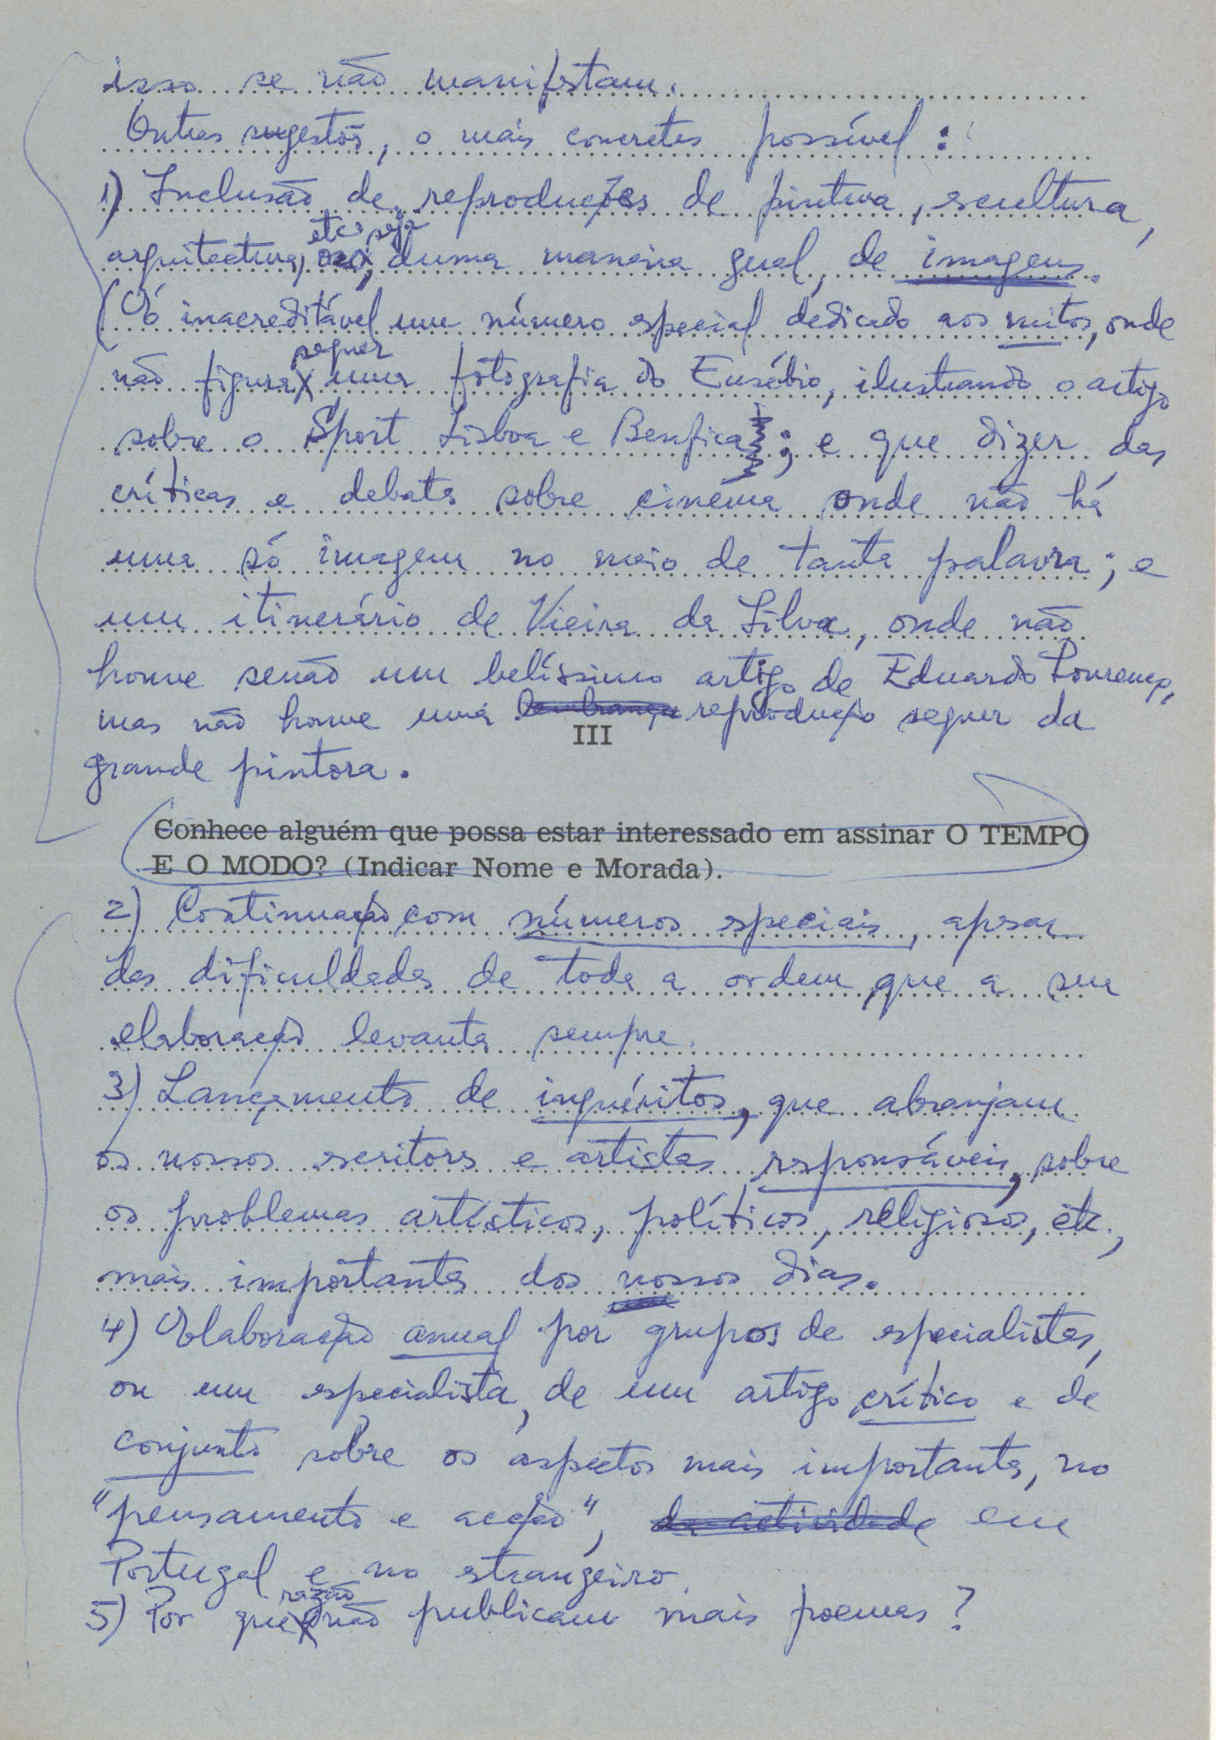 isso se não manifestam.
Outras sugestões, o mais concretas possível:
1) Inclusão de reproduções de pintura, escultura,
arquitectura, etc, seja duma maneira geral, de imagens.
(É inacreditável um número especial dedicado aos mitos, onde
não figura sequer uma fotografia do Eusébio, ilustrando o artigo
sobre o Sport Lisboa e Benfica; e que dizer das
críticas e debates sobre cinema onde não há
uma só imagem no meio de tanta palavra; e
um itinerário de Vieira da Silva, onde não
houve senão um belíssimo artigo de Eduardo Lourenço,
mas não houve uma lembrança reprodução sequer da
III
grande pintora.
Conhece alguém que possa estar interessado em assinar O TEMPO
E O MODO? (Indicar Nome e Morada).
2) Continuação com números especiais, apesar
das dificuldades de toda a ordem que a sua
elaboração levanta sempre.
3) Lançamento de inquéritos, que abranjam
os nossos escritores e artistas responsáveis, sobre
os problemas artísticos, políticos, religiosos, etc.,
mais importantes dos nossos dias.
4) Elaboração anual por grupos de especialistas,
ou um especialista, de um artigo crítico e de
conjunto sobre os aspectos mais importantes, no
"pensamento e acção", da actividade em
Portugal e no estrangeiro.
5) Por que razão não publicam mais poemas?